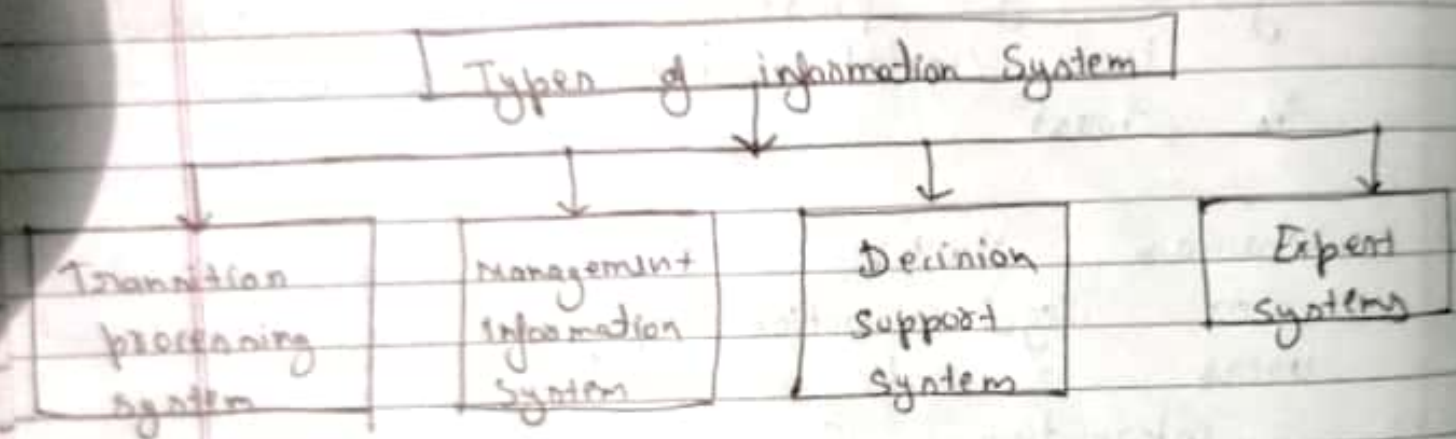 Types of information System
Transition
processing
system
Management
Information
System
Decision
support
system
Expert
systems